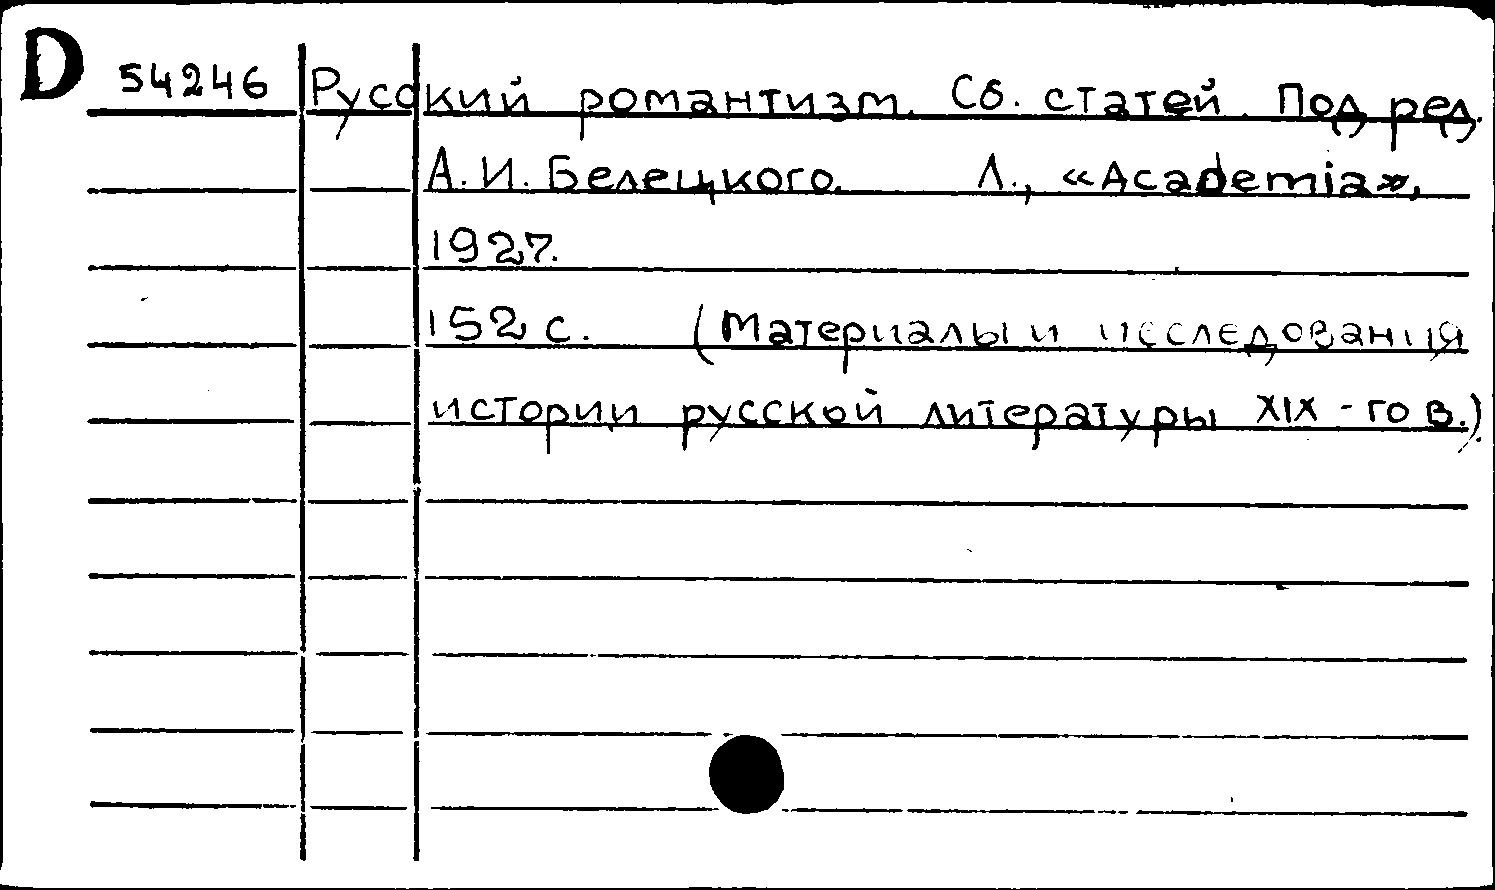 D 54246 Русский романтизм. Сб. статей. Под ред.
А. И. Белецкого. Л., «Academia»,
1927.
152 с. (Материалы и исследования
истории русской литературы XIX - го в.)